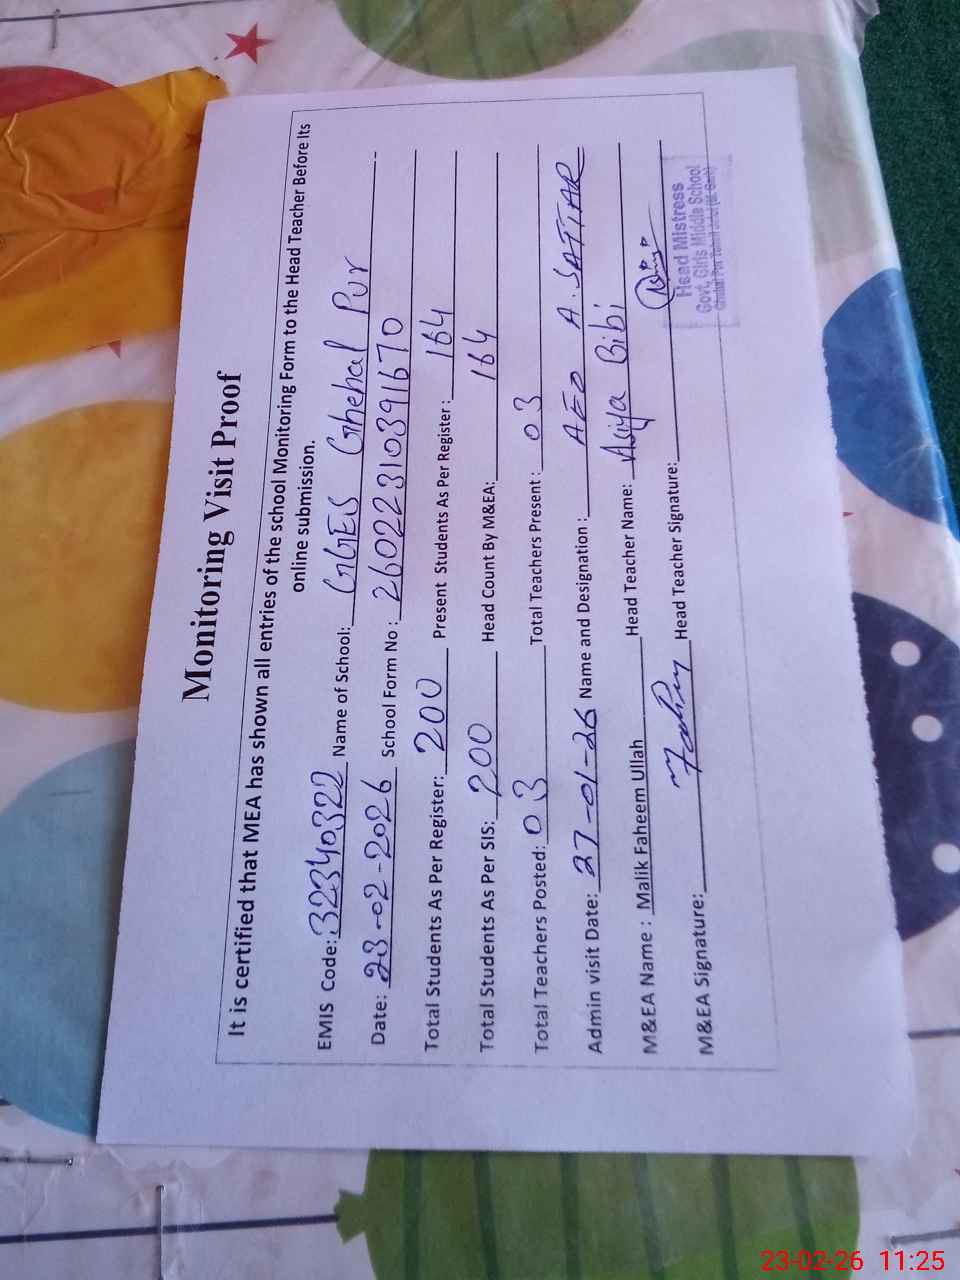 Monitoring Visit Proof
It is certified that MEA has shown all entries of the school Monitoring Form to the Head Teacher Before Its
online submission.
EMIS Code: 32340322 Name of School: GGES Ghehal Pur
Date: 23-02-2026 School Form No : 26022310391670
Total Students As Per Register: 200 Present Students As Per Register: 164
Total Students As Per SIS: 200 Head Count By M&EA: 164
Total Teachers Posted: 03 Total Teachers Present : 03
Admin visit Date: 27-01-26 Name and Designation : AEO A. SATTAR
M&EA Name : Malik Faheem Ullah Head Teacher Name: Asiya Bibi
M&EA Signature: Fahim Head Teacher Signature:
Head Mistress
Govt. Girls Middle School
23-02-26 11:25